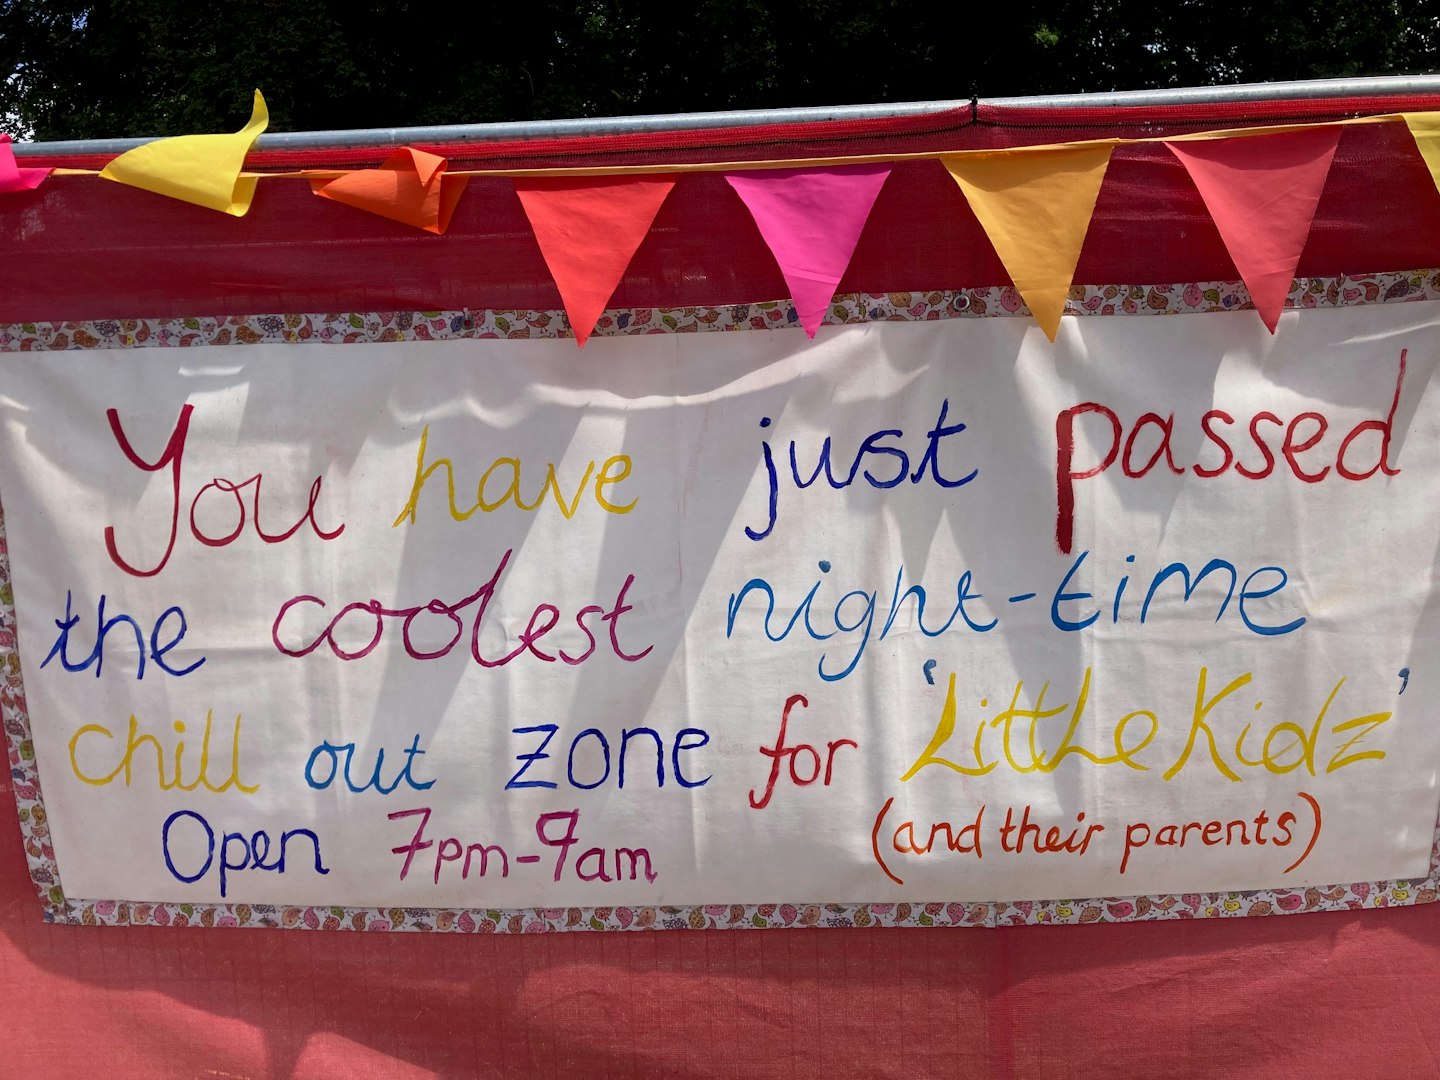 You have just passed
the coolest night-time
chill out zone for 'Little Kidz'
Open 7pm-9am (and their parents)